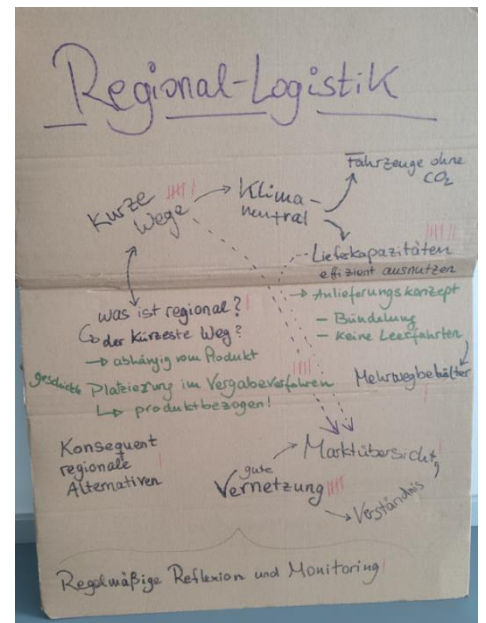 Regional-Logistik
Fahrzeuge ohne
CO2
Kurze
Wege
Klima-
neutral
Lieferkapazitäten
effizient ausnutzen
→ Anlieferungskonzept
– Bündelung
– keine Leerfahrten
Mehrwegbehälter
was ist regional?
↳ der kürzeste Weg?
→ abhängig vom Produkt
geschickte Platzierung im Vergabeverfahren
↳ produktbezogen!
Konsequent
regionale
Alternativen
Marktübersicht
gute
Vernetzung
→ Verständnis
Regelmäßige Reflexion und Monitoring